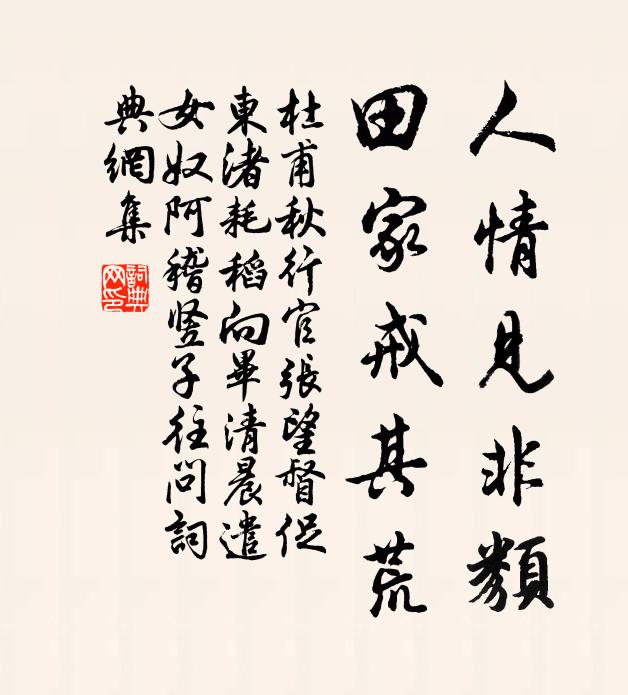 人情見非類
田家戒其荒
杜甫秋行官張望督促
東渚耗稻向畢清晨遣
女奴阿稽豎子往問詞
典網集
詞典網印